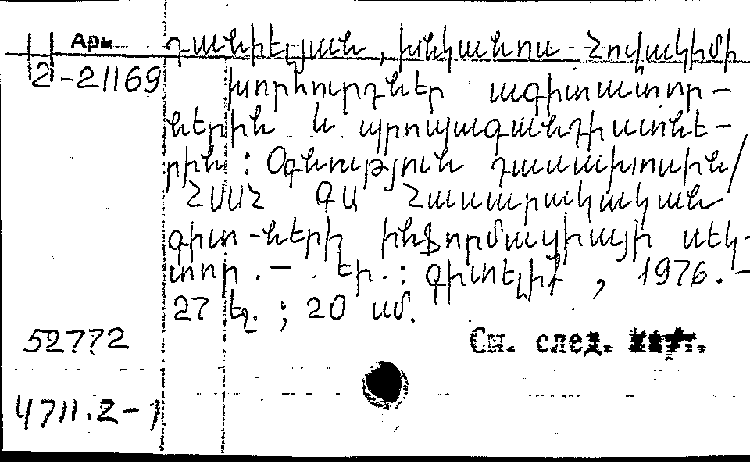 Արм Դանիելյան, Խնկանոս Հովակիմի
2-21169 Խորհուրդներ ագիտատոր-
ներին և պրոպագանդիստնե-
րին : Օգնություն դասախոսին/
ՀՍՍՀ ԳԱ Հասարակական
գիտ-ների ինֆորմացիայի սեկ-
տոր. — Եր. : Գիտելիք, 1976. —
27 էջ. ; 20 սմ.
52772 См. след. карт.
4711.2-1